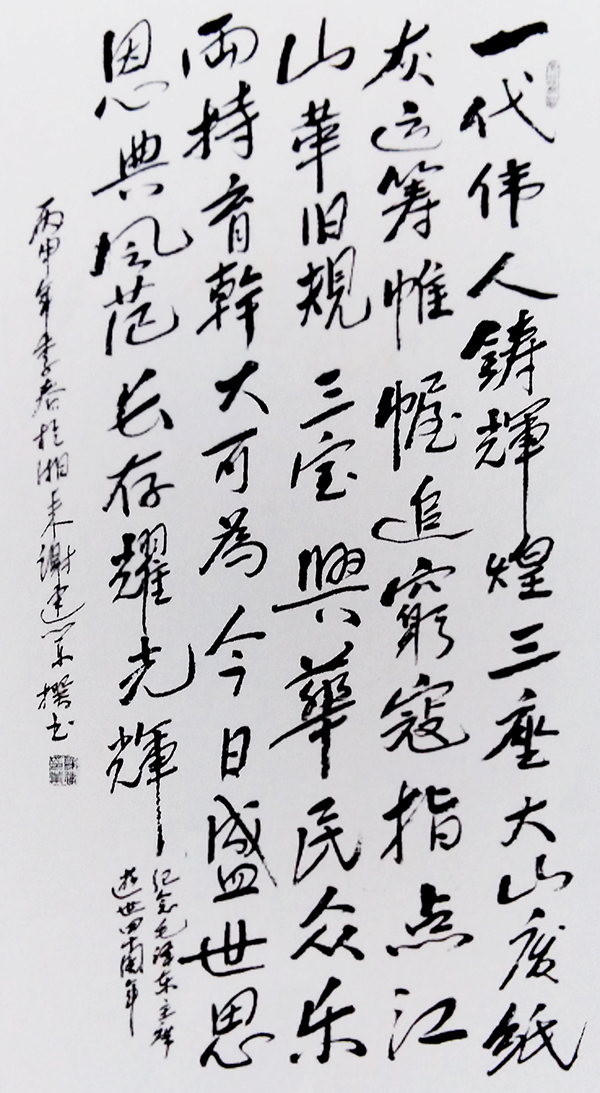 一代伟人鋳輝煌三座大山废纸
灰运筹帷幄追窮寇指点江
山革旧規三宝興華民众乐
両持育幹大可為今日盛世思
恩典风范长存耀光輝
纪念毛泽东主席
逝世四十周年
丙申年季春於湘耒谢建军撰书